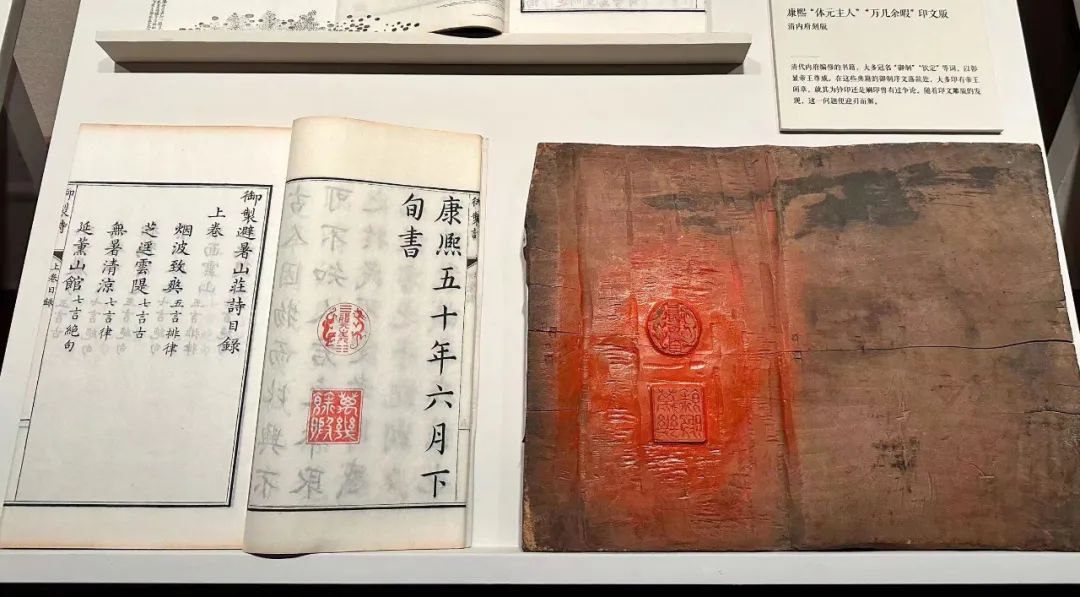 康熙“体元主人”“万几余暇”印文版
清内府刻版
清代内府编修的书籍，大多冠名“御制”“钦定”等词，以彰
显帝王尊威。在这些典籍的御制序文落款处，大多印有帝王
闲章。就其为钤印还是刷印曾有过争论。随着印文雕版的发
现，这一问题便迎刃而解。
康熙五十年六月下
旬書
體元主人
萬幾餘暇
御製避暑山莊詩目錄
上卷
烟波致爽 五言排律
芝逕雲隄 七言古
無暑清涼 七言律
延薰山館 七言絶句
上卷目錄